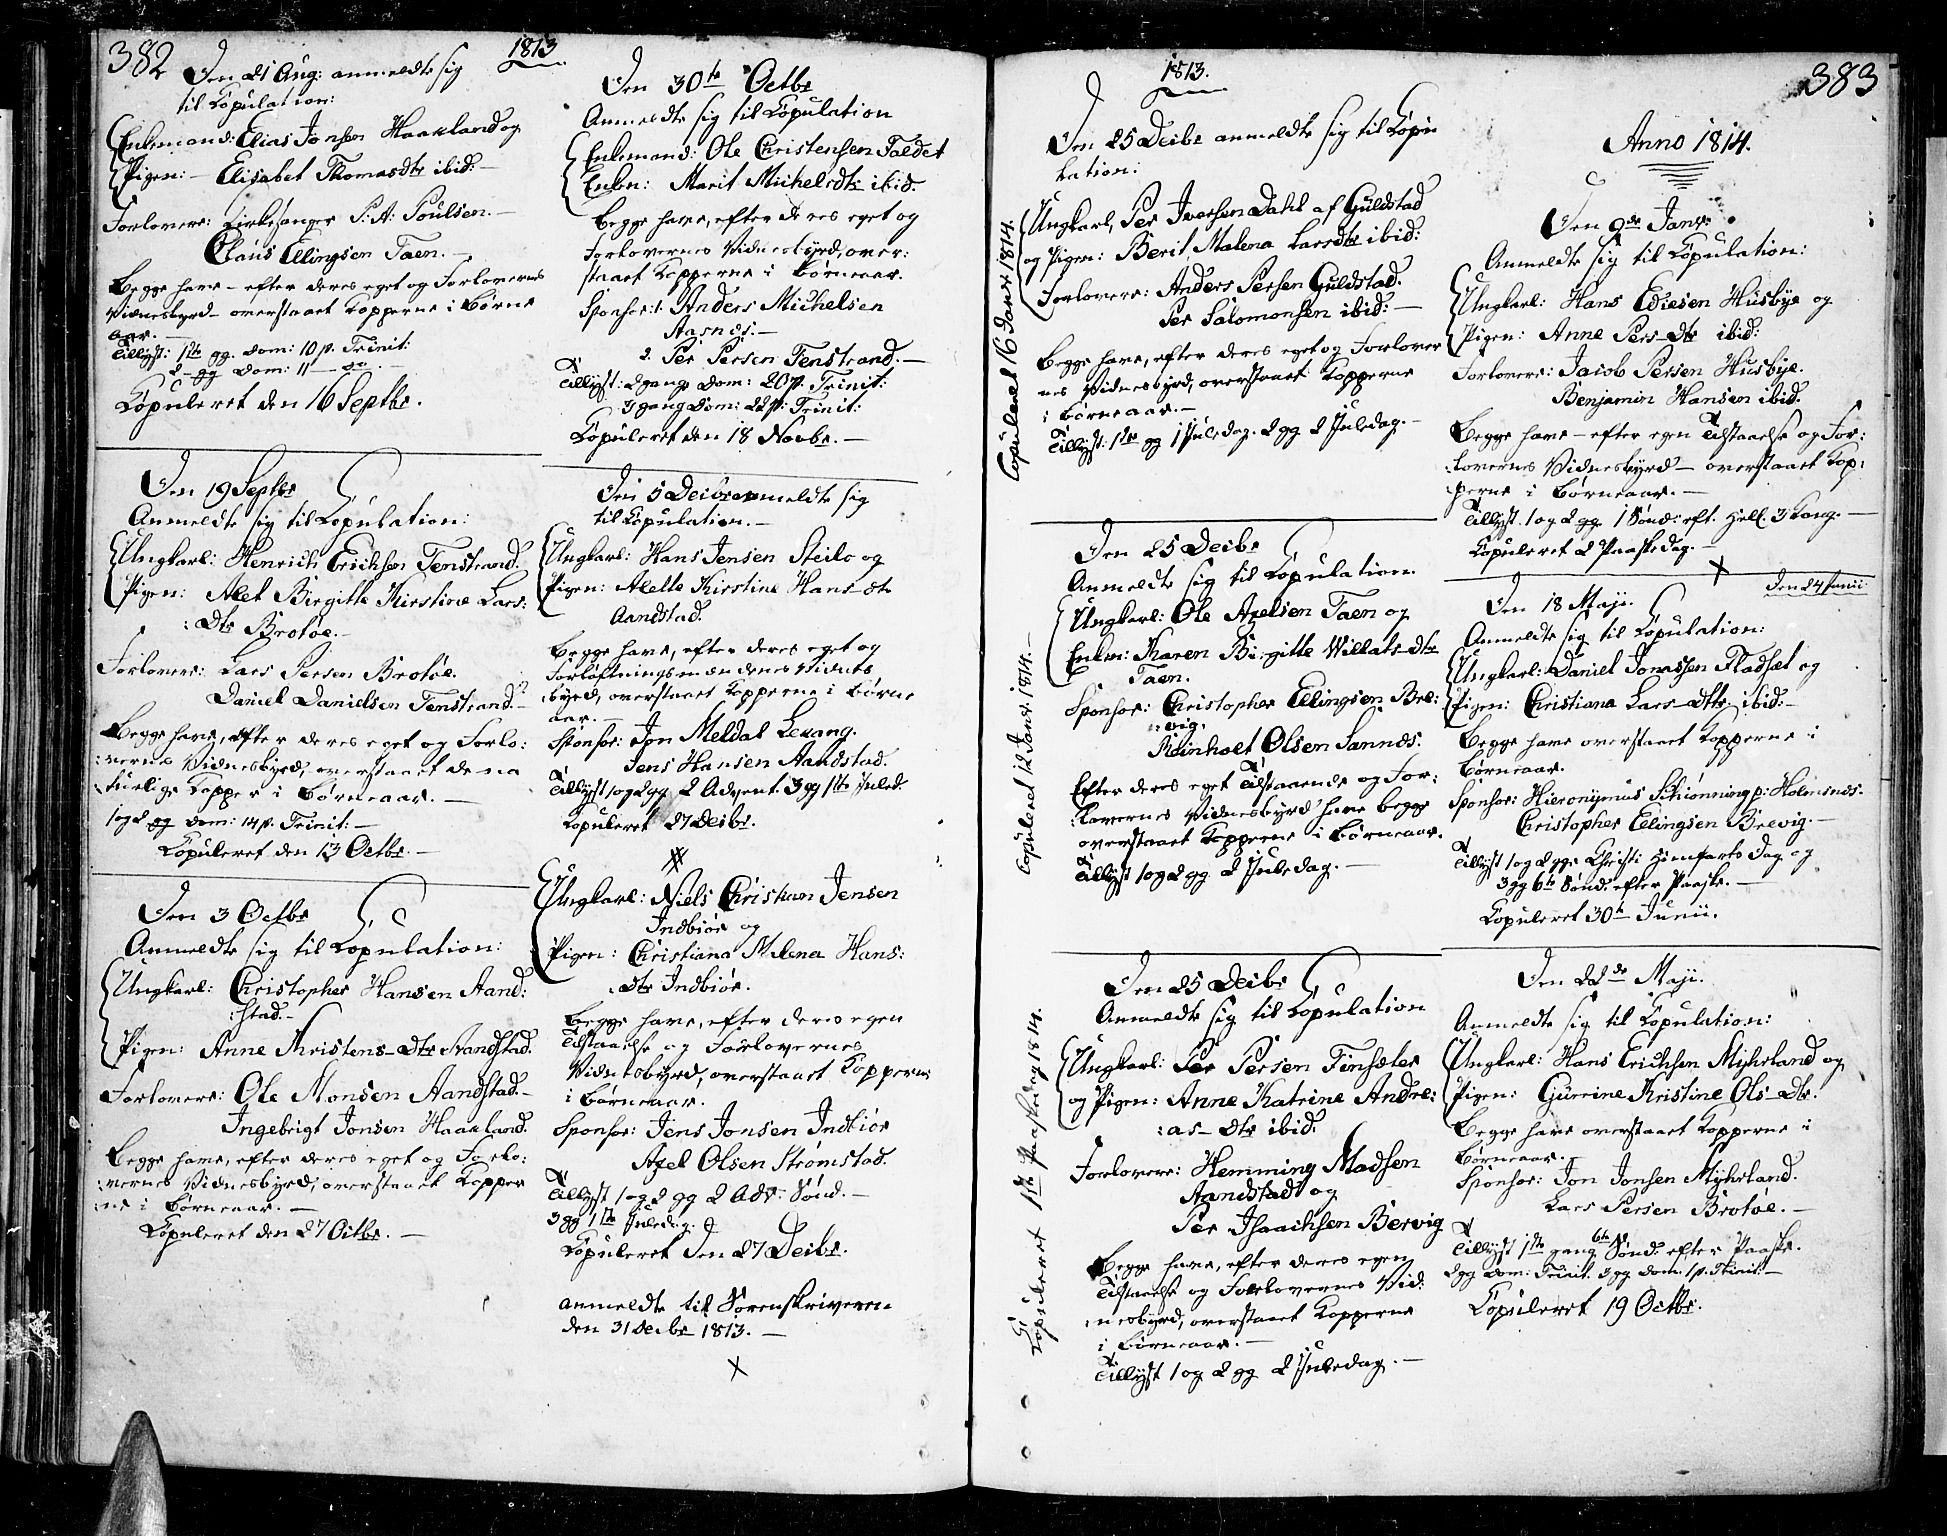 382
1813
Den 21 Aug: anmeldte sig
til Copulation:
Enkemand: Elias Jonsen Haakland og
Pigen: - Elisabet Thomasdtr ibid: -
Forlovere: Kirkesanger P: A: Poulsen. -
Claus Ellingsen Taen. -
Begge have - efter deres eget og Forlovernes
Vidnesbyrd - overstaaet Kopperne i Børne
aar. -
Tillyst: 1ste gg. Dom: 10 p. Trinit:
2 - gg Dom: 11 - do. -
Copuleret den 16 Septbr.
Den 19 Septbr
Anmeldte sig til Copulation:
Ungkarl: Henrich Erichsen Tenstrand.
Pigen: Alet Birgitte Kirstine Lars:
:Dtr Brotøe. -
Forlovere: Lars Persen Brotøe.
Daniel Danielsen Tenstrand. -
Begge have, efter deres eget og Forlo:
:vernes Vidnesbyrd, overstaaet de na
:turlige Kopper i Børneaar. -
1 og 2 gg Dom: 14 p. Trinit: -
Copuleret den 13 Octbr. -
Den 3 Octbr
Anmeldte sig til Copulation:
Ungkarl: Christopher Hansen Aand:
:stad. -
Pigen: Anne Kristens-Dtr Aandstad.
Forlovere: Ole Monsen Aandstad. -
Ingebrigt Jonsen Haakland.
Begge have, efter deres eget og Forlo:
:vernes Vidnesbyrd, overstaaet Kopper
:ne i Børneaar. -
Copuleret den 27 Octbr. -
Den 30te Octbr
Anmeldte sig til Copulation
Enkemand: Ole Christensen Taldet
Enken: Marit Michelsdtr ibid.
Begge have, efter deres eget og
Forlovernes Vidnesbyrd, over:
:staaet Kopperne i Børneaar.
Sponsor: 1. Anders Michelsen
Aasnæs: -
2. Per Persen Tenstrand. -
Tillyst: 2 gang Dom: 20 p. Trinit:
3 gang Dom: 22 p: Trinit:
Copuleret den 18 Novbr. -
Den 5 Decbr anmeldte sig
til Copulation. -
Ungkarl: Hans Jensen Steilo og
Pigen: Alette Kirstine Hans-Dtr
Aandstad.
Begge have, efter deres eget og
Forløftningsmændenes Vidnes
:byrd, overstaaet Kopperne i Børne
aar. -
Sponsor: Jon Meldal Lexang.
Jens Hansen Aandstad.
Tillyst 1 og 2 gg 2 Advent. 3 gg 1ste Juled.
Copuleret 27 Decbr.
Ungkarl: Niels Christian Jensen
Indbiør og
Pigen: Christiana Malena Hans:
:dtr Indbiør.
Begge have, efter deres egen
Tilstaaelse og Forlovernes
Vidnesbyrd, overstaaet Kopperne
i Børneaar.
Sponsor: Jens Jonsen Indbiør
Axel Olsen Strømstad.
Tillyst 1 og 2 gg 2 Adv: Sønd. -
3 gg 1ste Juledag.
Copuleret Den 27 Decbr.
anmeldte til Sorenskriveren
den 31 Decbr 1813. -
383
1813.
Den 25 Decbr anmeldte sig til Copu
lation:
Ungkarl, Per Iversen Dahl af Guldstad
og Pigen: Berit Malena Larsdtr ibid:
Forlovere: Anders Persen Guldstad.
Per Salomonsen ibid: -
Begge have, efter deres eget og Forlover
nes Vidnesbyrd, overstaaet Kopperne
i Børneaar. -
Tillyst: 1ste gg 1 Juledag. 2 gg 2 Juledag. -
Copuleret 16 Janr 1814.
Den 25 Decbr
Anmeldte sig til Copulation.
Ungkarl: Ole Axelsen Taen og
Enken: Karen Birgitte Willats-dtr
Taen.
Sponsor: Christopher Ellingsen Bre:
:vig.
Reinholt Olsen Sannæs.
Efter deres eget Tilstaaende og For:
:lovernes Vidnesbyrd have begge
overstaaet Kopperne i Børneaar.
Tillyst 1 og 2 gg 2 Juledag. -
Copuleret 12 Janr. 1814. -
Den 25 Decbr
Anmeldte sig til Copulation
Ungkarl: Per Persen Finsæter
og Pigen: Anne Katrine Andre:
:as-Dtr ibid.
Forlovere: Hemming Madsen
Aandstad og
Per Isaachsen Bervig
Begge have, efter deres egen
Tilstaaelse og Forlovernes Vid:
:nesbyrd, overstaaet Kopperne
i Børneaar. -
Tillyst 1 og 2 gg 2 Juledag. -
Copuleret 1ste Paaskedag 1814.
Anno 1814.
Den 9de Janr.
Anmeldte sig til Copulation:
Ungkarl: Hans Ediesen Husbye og
Pigen: Anne Pers-Dtr ibid:
Forlovere: Jacob Persen Husbye.
Benjamin Hansen ibid.
Begge have - efter egen Tilstaaelse og For:
:lovernes Vidnesbyrd - overstaaet Kop:
:perne i Børneaar. -
Tillyst. 1 og 2 gg 1 Sønd: eft. Hell. 3 Kong. -
Copuleret 2 Paaskedag. -
Den 24 Junii
Den 18 Maji.
Anmeldte sig til Copulation:
Ungkarl: Daniel Jonassen Fladsæt og
Pigen: Christiana Lars-Dtr. ibid: -
Begge have overstaaet Kopperne i
Børneaar.
Sponsor: Hieronymus Schiønning p: Holmsnæs.
Christopher Ellingsen Brevig. -
Tillyst 1 og 2 gg. Christi Himfarts Dag og
3 gg 6te Sønd. efter Paaske. -
Copuleret 30te Junii.
Den 22de Maji.
Anmeldte sig til Copulation:
Ungkarl: Hans Erichsen Myhrland og
Pigen: Gurrine Kristine Ols-Dtr.
Begge have overstaaet Kopperne i
Børneaar. -
Sponsor: Jon Jonsen Myhrland.
Lars Persen Brotøe. -
Tillyst 1ste gang 6te Sønd: efter Paaske.
2 gg Dom: Trinit. 3 gg Dom. 1 p. Trinit: -
Copuleret 19 Octbr.